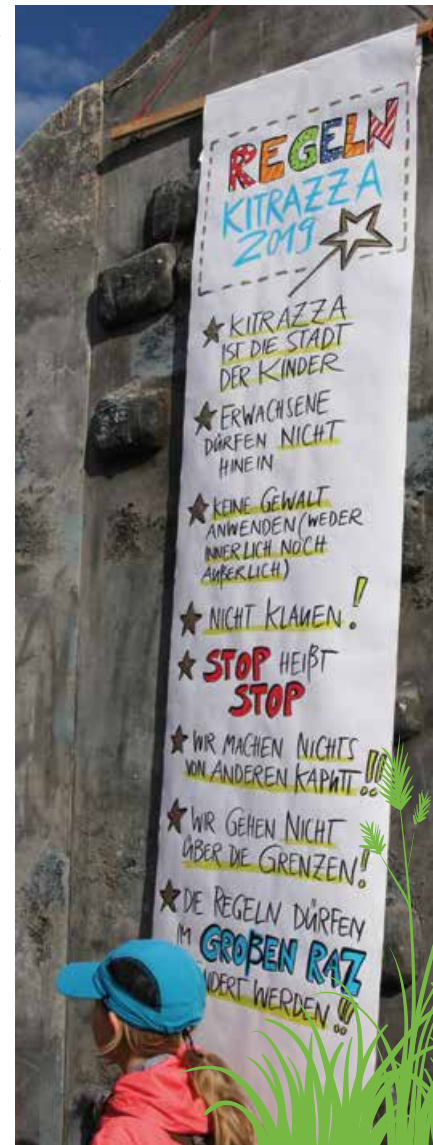 REGELN
KITRAZZA
2019
KITRAZZA
IST DIE STADT
DER KINDER
ERWACHSENE
DÜRFEN NICHT
HINEIN
KEINE GEWALT
ANWENDEN (WEDER
INNERLICH NOCH
ÄUßERLICH)
NICHT KLAUEN!
STOP HEIßT
STOP
WIR MACHEN NICHTS
VON ANDEREN KAPUTT!!
WIR GEHEN NICHT
ÜBER DIE GRENZEN!
DIE REGELN DÜRFEN
IM GROßEN RAZ
NDERT WERDEN!!